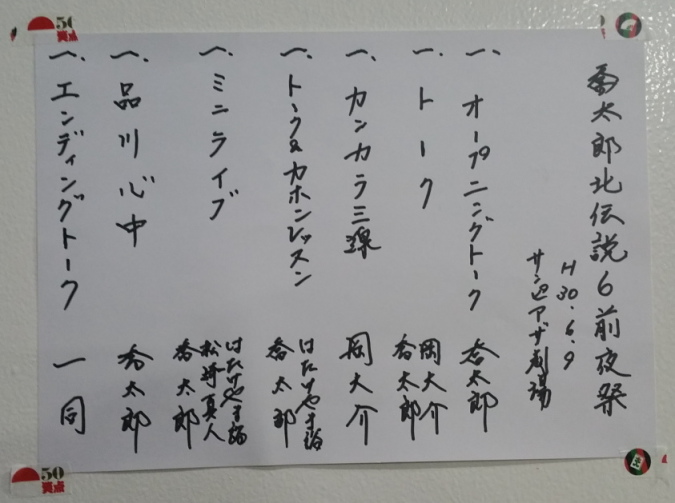 喬太郎北伝説6前夜祭
H30.6.9
サンピアザ劇場
一、オープニングトーク 喬太郎
一、トーク 岡大介
喬太郎
一、カンカラ三線 岡大介
一、トーク&カホンレッスン はたけやま裕
喬太郎
一、ミニライブ はたけやま裕
松崎真人
喬太郎
一、品川心中 喬太郎
一、エンディングトーク 一同
50
笑点
50
笑点